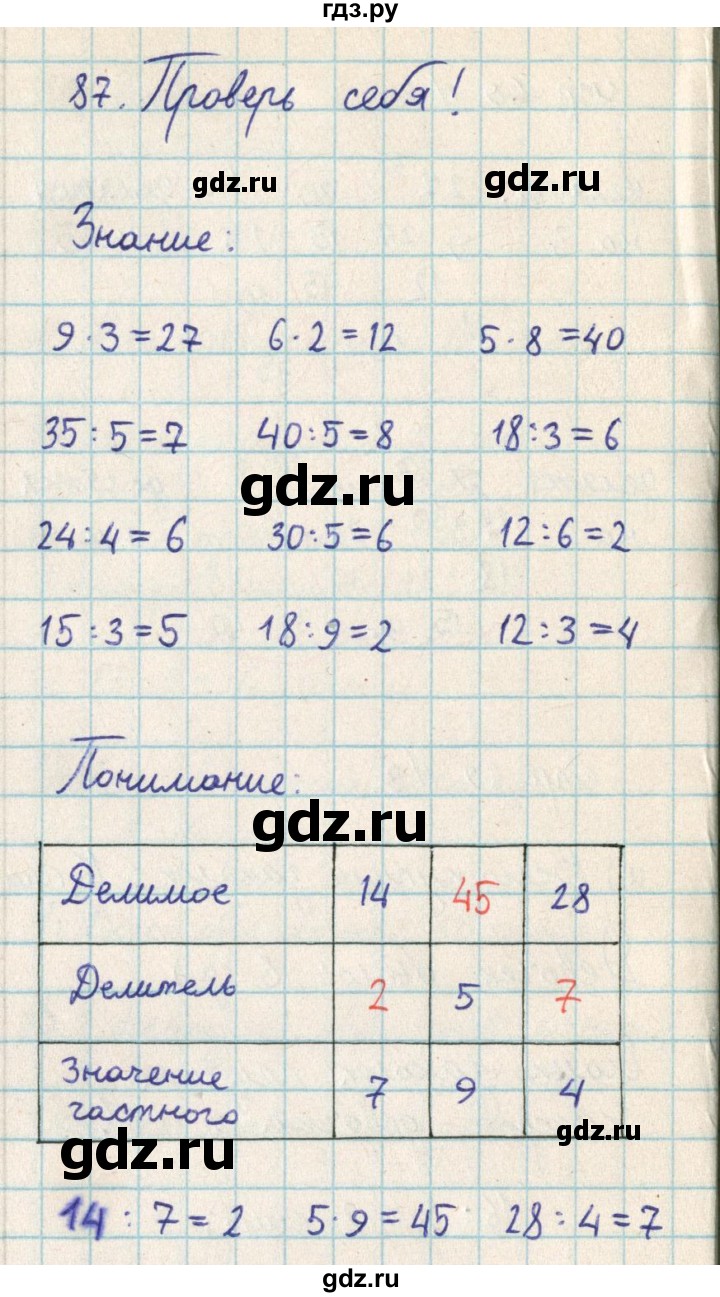 гдз.ру
87. Проверь себя!
gdz.ru gdz.ru
Знание:
9 · 3 = 27 6 · 2 = 12 5 · 8 = 40
35 : 5 = 7 40 : 5 = 8 18 : 3 = 6
gdz.ru
24 : 4 = 6 30 : 5 = 6 12 : 6 = 2
15 : 3 = 5 18 : 9 = 2 12 : 3 = 4
Понимание:
gdz.ru
Делимое 14 45 28
Делитель 2 5 7
Значение
частного 7 9 4
gdz.ru
gdz.ru
14 : 7 = 2 5 · 9 = 45 28 : 4 = 7
gdz.ru